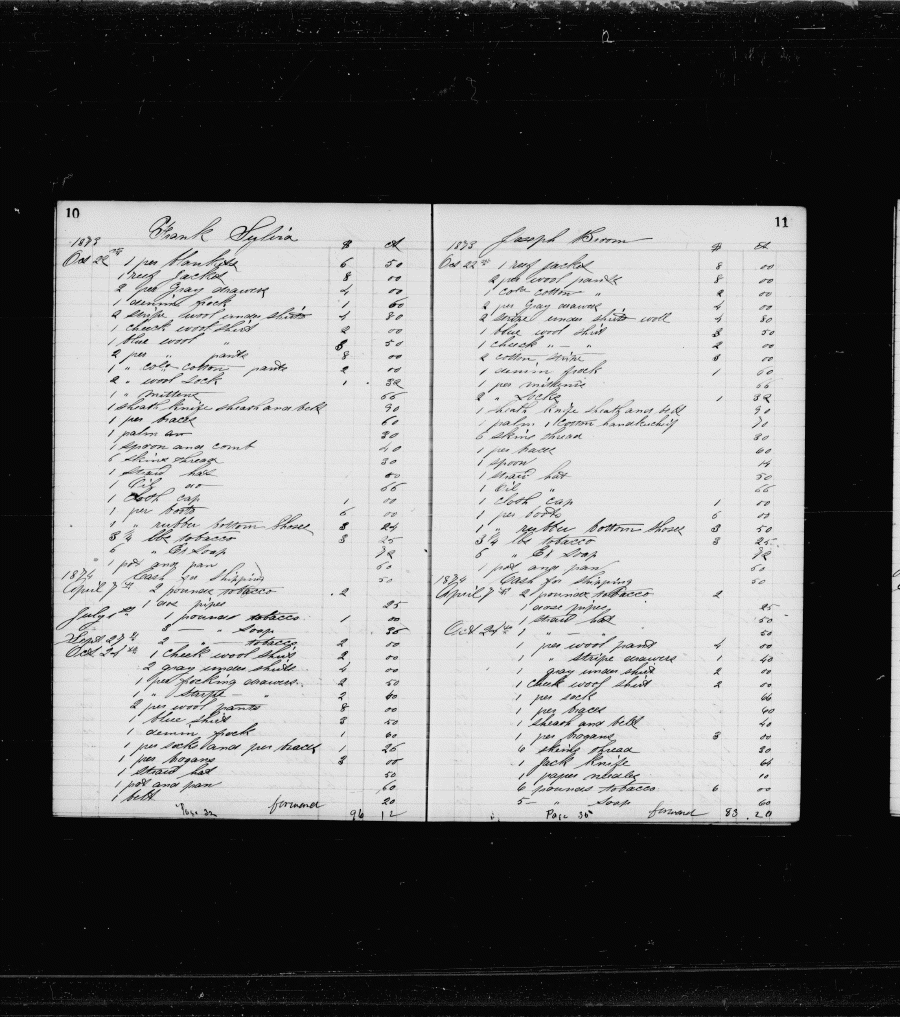 10
Frank Sylvia
1873 $ ct
Oct 22nd 1 per blankets 6 50
1 reef jacket 8 00
2 per gray drawers 4 00
1 denim frock 1 60
2 stripe wool under shirts 4 80
1 check wool shirt 2 00
1 blue wool " 3 50
2 per " pants 8 00
1 " cold cotton pants 2 00
2 " wool sock 1 32
1 " mittens 66
1 sheath knife sheath and belt 90
1 per braces 60
1 palm 30
1 spoon and comb 40
6 skins thread 30
1 straw hat 50
1 Oil do 66
1 Cloth cap 1 00
1 per boots 6 00
1 " rubber bottom shoes 3 24
3 1/4 lbs tobacco 3 25
6 " Es Soap 72
1 pot and pan 60
1874 Cash for shipping 50
April 7th 2 pounds tobacco 2
1 doz pipes 25
July 1st 1 pounds tobacco 1 00
3 " Soap 36
Sept 27th 2 — " — tobacco 2 00
Oct 24th 1 check wool shirt 2 00
2 gray under shirts 4 00
1 per focking drawers 2 50
1 " stripe — " 2 40
2 per wool pants 8 00
1 blue shirt 3 50
1 denim frock 1 60
1 per socks and per braces 1 26
1 per brogans 3 00
1 straw hat 50
1 pot and pan 60
1 belt 20
Page 32 forward 96 12
11
Joseph Broom
1873 $ ct
Oct 22nd 1 reef jacket 8 00
2 per wool pants 8 00
1 cold cotton " 2 00
2 per gray drawers 4 00
2 stripe under shirts woll 4 80
1 blue wool shirt 3 50
1 check " — " 2 00
2 cotton stripe 00
1 denim frock 1 60
1 per mittens 66
2 " Socks 1 32
1 heath knife sheath and belt 90
1 palm 1 cotton handkerchif 70
6 skins thread 30
1 per braces 60
1 spoon
1 straw hat 50
1 Oil " 66
1 cloth cap 1 00
1 per boots 6 00
1 " rubber bottom shoes 3 50
3 1/4 lbs tobacco 3 25
6 " Es Soap 72
1 pot and pan 60
1874 Cash for shipping 50
April 7th 2 pounds tobacco 2
1 dose pipes 25
1 straw hat 50
Oct 24th 1 " — " 50
1 per wool pant 4 00
1 " stripe drawers 1 40
1 gray under shirt 2 00
1 Check wool shirt 2 00
1 per sock 66
1 per braces 40
1 sheath and belt 40
1 per brogans 3 00
6 skeins thread 30
1 Jack Knife 66
1 paper needles 10
6 pounds tobacco 6 00
5 — " Soap 60
Page 36 forward 83 20